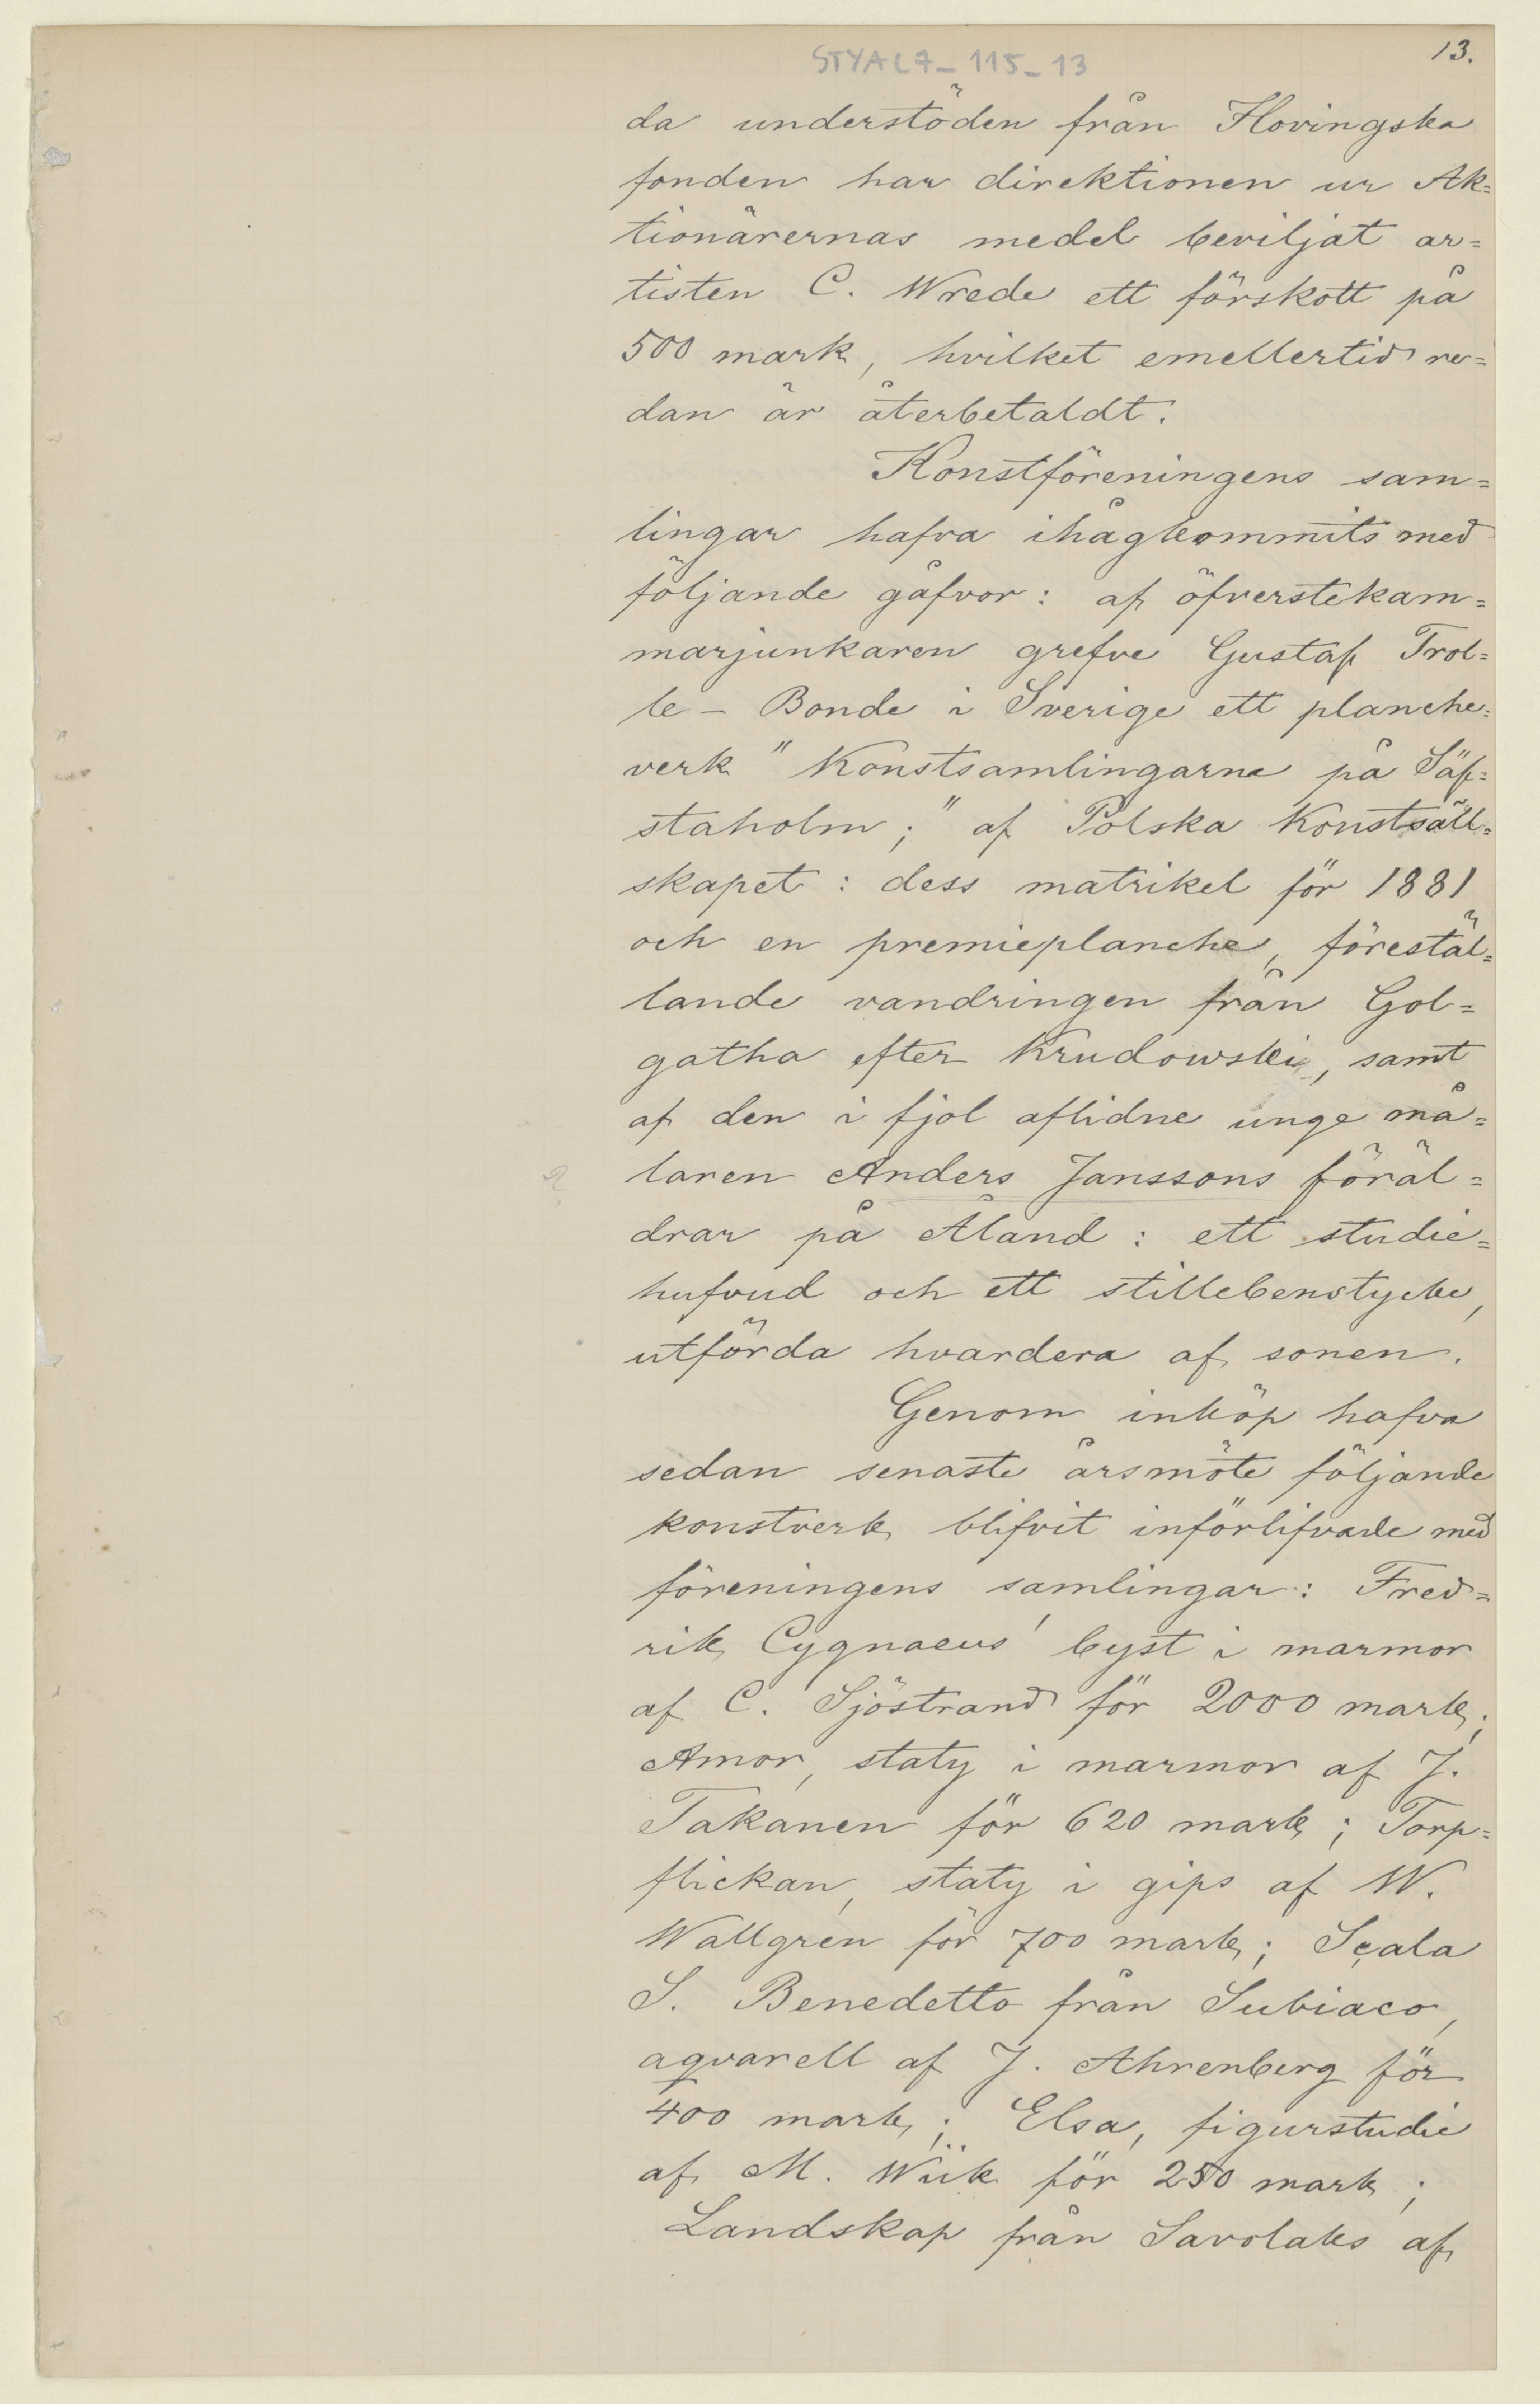 STYAL7_115_13
13.
da understöden från Hovingska
fonden har direktionen ur Ak=
tionärernas medel beviljat ar=
tisten C. Wrede ett förskott på
500 mark, hvilket emellertid re=
dan är återbetaldt.
Konstföreningens sam=
lingar hafva ihågkommits med
följande gåfvor: af öfverstekam=
marjunkaren grefve Gustaf Trol=
le - Bonde i Sverige ett planche=
verk "Konstsamlingarne på Säf=
staholm;" af Polska Konstsäll=
skapet: dess matrikel för 1881
och en premieplanche, förestäl=
lande vandringen från Gol=
gatha efter Krudowski, samt
af den i fjol aflidne unge må=
laren Anders Janssons föräl=
drar på Åland: ett studie=
hufvud och ett stillebenstycke,
utförda hvardera af sonen.
Genom inköp hafva
sedan senaste årsmöte följande
konstverk blifvit införlifvade med
föreningens samlingar: Fred=
rik Cygnaeus' byst i marmor
af C. Sjöstrand för 2000 mark;
Amor, staty i marmor af J.
Takanen för 620 mark; Torp=
flickan, staty i gips af W.
Wallgren för 700 mark; Scala
S. Benedetto från Subiaco,
aqvarell af J. Ahrenberg för
400 mark; Elsa, figurstudie
af M. Wiik för 250 mark;
Landskap från Savolaks af